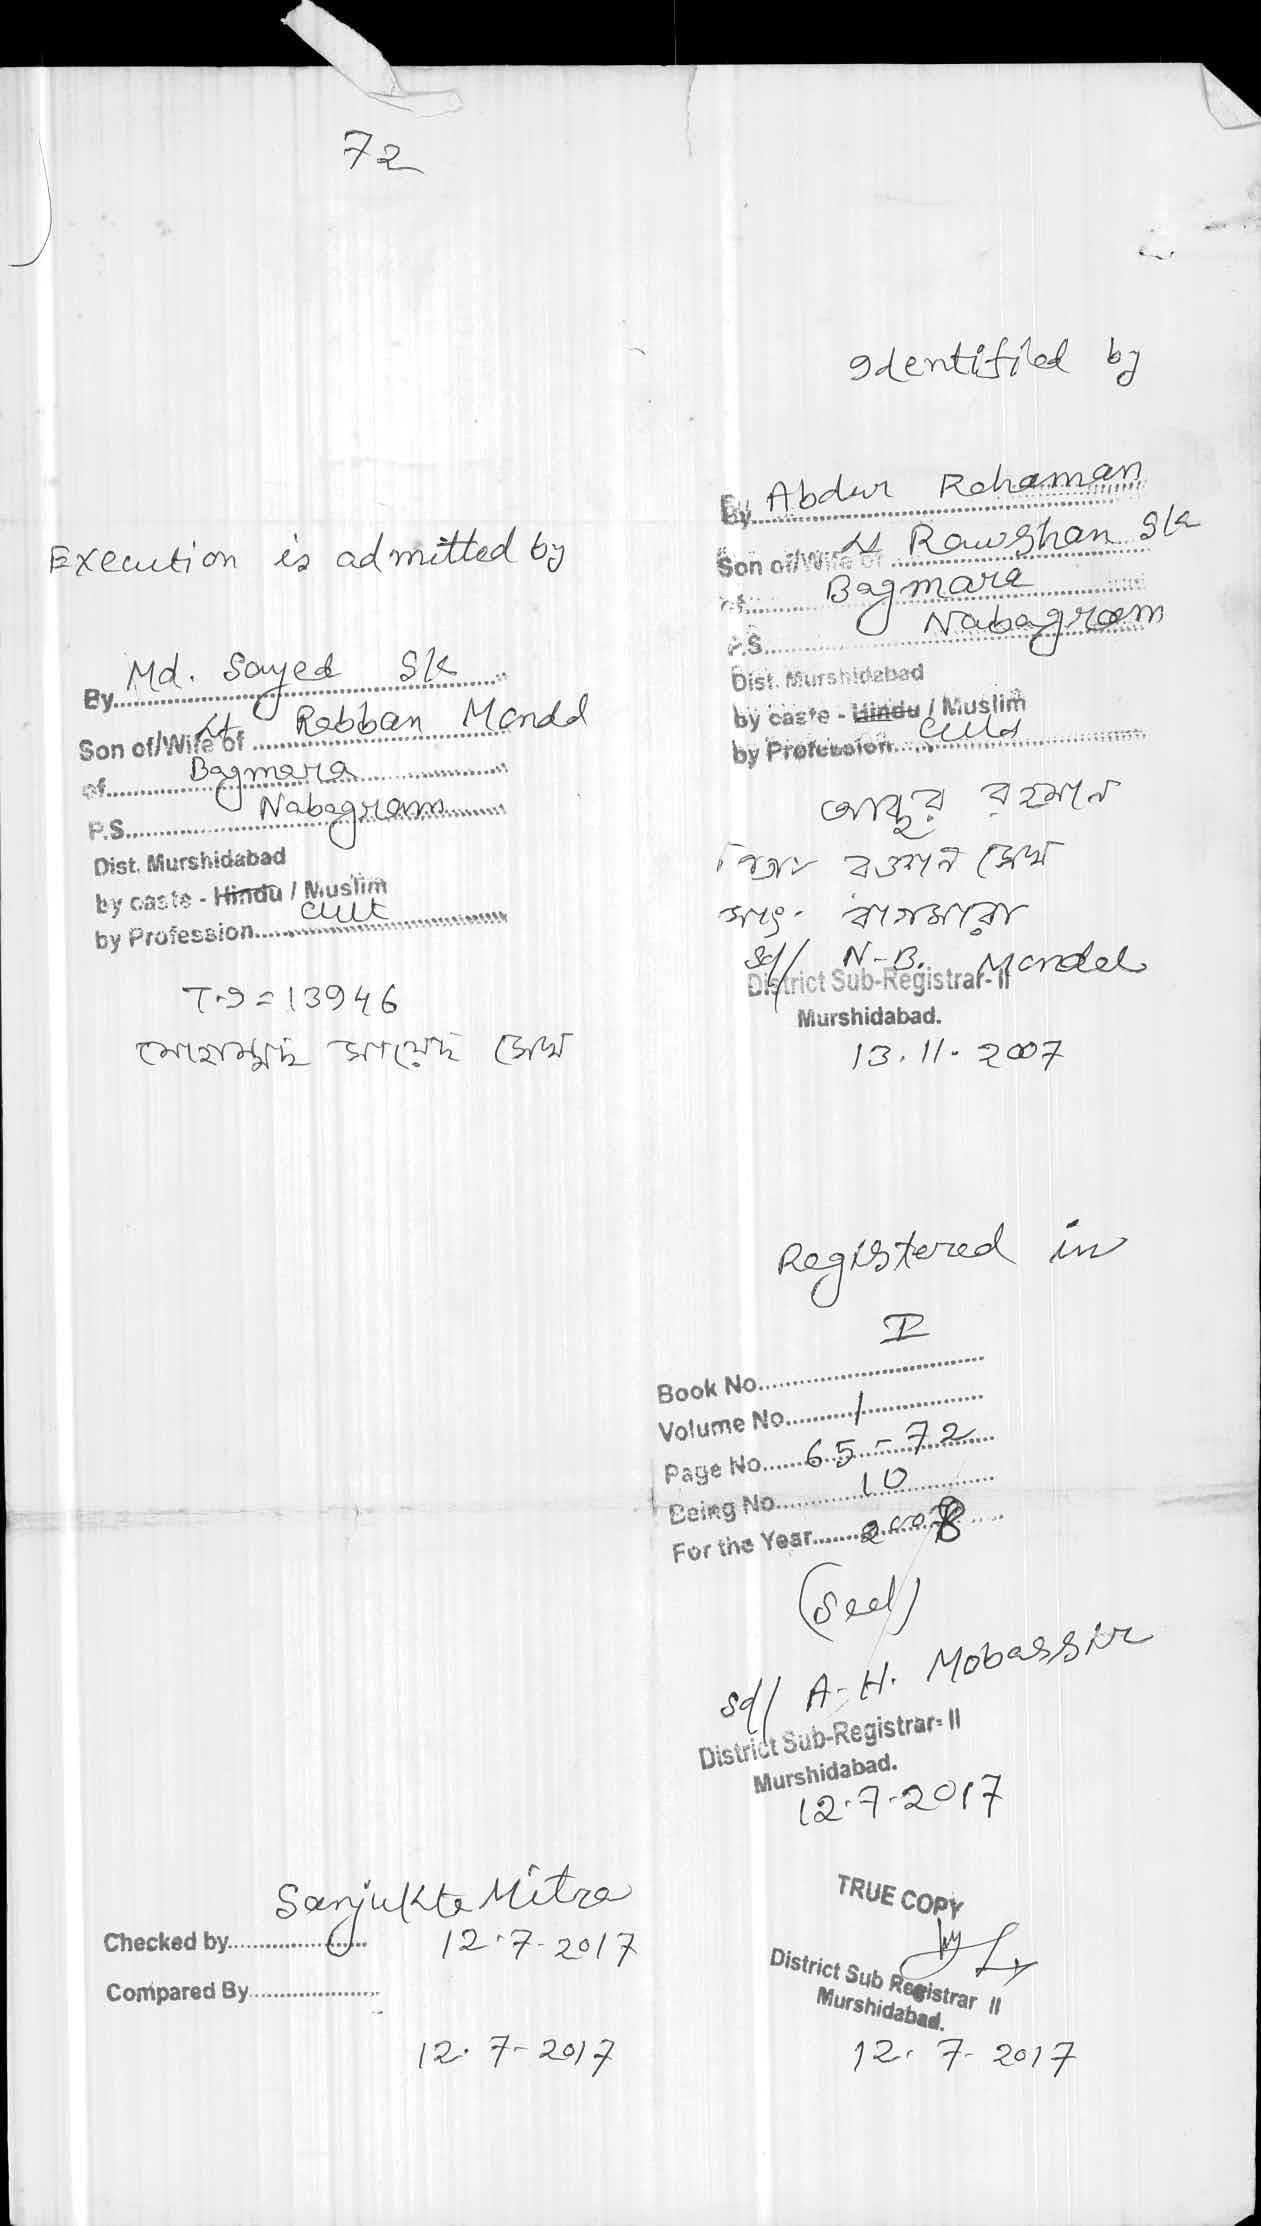 72
Execution is admitted by
By Md. Sayed Sk
Son of/Wife of Lt Rebban Mondal
of Bagmara
P.S. Nabagram
Dist. Murshidabad
by caste - Hindu / Muslim
by Profession Cult
T.I = 13946
মোহাম্মদ সায়েদ সেখ
Identified by
By Abdur Rohaman
Son of/Wife of Lt Rawshan Sk
of Bagmara
P.S. Nabagram
Dist. Murshidabad
by caste - Hindu / Muslim
by Profession
আব্দুর রহমান
পিতা রওশন সেখ
সাং- বাগমারা
Sd/ N-B. Mondal
District Sub-Registrar- II
Murshidabad.
13.11.2007
Registered in
Book No. I
Volume No. 1
Page No. 65-72
Being No. 10
For the Year 2008
(Seal)
Sd/ A-H. Mobassir
District Sub-Registrar- II
Murshidabad.
12.7.2017
Sanjukta Mitra
Checked by 12.7.2017
Compared By
12.7-2017
TRUE COPY
District Sub Registrar II
Murshidabad.
12.7-2017